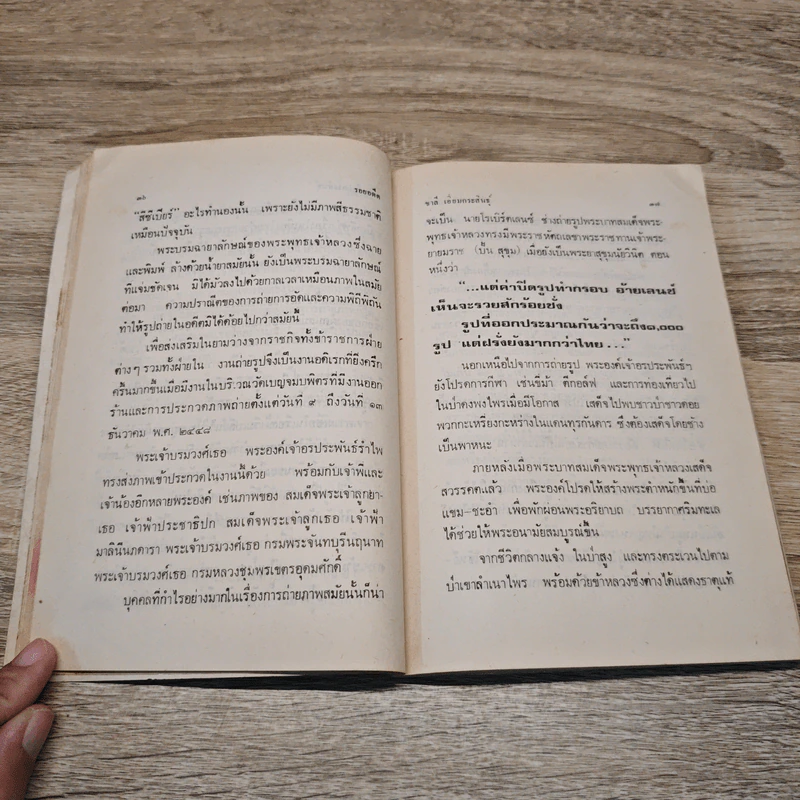 ๓๖ รอยอดีต
"สีซีเปียร์" อะไรทำนองนั้น เพราะยังไม่มีภาพสีธรรมชาติ
เหมือนปัจจุบัน
พระบรมฉายาลักษณ์ของพระพุทธเจ้าหลวงซึ่งฉาย
และพิมพ์ ล้างด้วยน้ำยาสมัยนั้น ยังเป็นพระบรมฉายาลักษณ์
ที่แจ่มชัดเจน มิได้มัวลงไปด้วยกาลเวลาเหมือนภาพในสมัย
ต่อมา ความปราณีตของการถ่ายการอัดและความพิถีพิถัน
ทำให้รูปถ่ายในอดีตมิได้ด้อยไปกว่าสมัยนี้
เพื่อส่งเสริมในยามว่างจากราชกิจทั้งข้าราชการฝ่าย
ต่างๆ รวมทั้งฝ่ายใน งานถ่ายรูปจึงเป็นงานอดิเรกที่ยิ่งครึก
ครื้นมากขึ้นเมื่อมีงานในบริเวณวัดเบญจมบพิตรที่มีงานออก
ร้านและการประกวดภาพถ่ายตั้งแต่วันที่ ๙ ถึงวันที่ ๑๓
ธันวาคม พ.ศ. ๒๔๔๘
พระเจ้าบรมวงศ์เธอ พระองค์เจ้าอรประพันธ์รำไพ
ทรงส่งภาพเข้าประกวดในงานนี้ด้วย พร้อมกับเจ้าพี่และ
เจ้าน้องอีกหลายพระองค์ เช่นภาพของ สมเด็จพระเจ้าลูกยา-
เธอ เจ้าฟ้าประชาธิปก สมเด็จพระเจ้าลูกเธอ เจ้าฟ้า
มาลินีนภดารา พระเจ้าบรมวงศ์เธอ กรมพระจันทบุรีนฤนาท
พระเจ้าบรมวงศ์เธอ กรมหลวงชุมพรเขตรอุดมศักดิ์
บุคคลที่กำไรอย่างมากในเรื่องการถ่ายภาพสมัยนั้นก็น่า
ชาลี เอี่ยมกระสินธุ์ ๓๗
จะเป็น นายโรเบิร์ตเลนซ์ ช่างถ่ายรูปพระบาทสมเด็จพระ-
พุทธเจ้าหลวงทรงมีพระราชหัตถเลขาพระราชทานเจ้าพระ-
ยายมราช (ปั้น สุขุม) เมื่อยังเป็นพระยาสุขุมนัยวินิต ตอน
หนึ่งว่า
"...แต่ค่าปิดรูปทำกรอบ อ้ายเลนซ์
เห็นจะรวยสักร้อยชั่ง
รูปที่ออกประมาณกันว่าจะถึง๑,๐๐๐
รูป แต่ฝรั่งยังมากกว่าไทย..."
นอกเหนือไปจากการถ่ายรูป พระองค์เจ้าอรประพันธ์ฯ
ยังโปรดการกีฬา เช่นขี่ม้า ตีกอล์ฟ และการท่องเที่ยวไป
ในป่าดงพงไพรเมื่อมีโอกาส เสด็จไปพบชาวป่าชาวดอย
พวกกะเหรี่ยงกะหร่างในแดนทุรกันดาร ซึ่งต้องเสด็จโดยช้าง
เป็นพาหนะ
ภายหลังเมื่อพระบาทสมเด็จพระพุทธเจ้าหลวงเสด็จ
สวรรคตแล้ว พระองค์โปรดให้สร้างพระตำหนักขึ้นที่บ่อ
แขม-ชะอำ เพื่อพักผ่อนพระอริยาบถ บรรยากาศริมทะเล
ได้ช่วยให้พระอนามัยสมบูรณ์ขึ้น
จากชีวิตกลางแจ้ง ในป่าสูง และทรงตระเวนไปตาม
ป่าเขาลำเนาไพร พร้อมด้วยข้าหลวงซึ่งต่างได้แสดงธาตุแท้